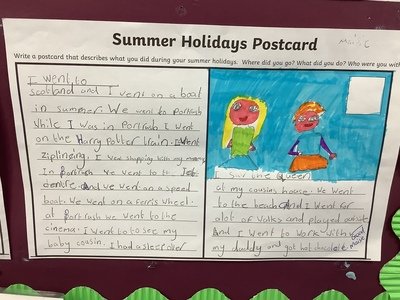 Summer Holidays Postcard
Write a postcard that describes what you did during your summer holidays. Where did you go? What did you do? Who were you with
I went to
scotland and I went on a boat
in summer. We went to portrash
While I was in Portrush I went
on the Harry Potter train. I went
Ziplineing. I went shopping with my mummy
In portrash we went to the
centre. And we went on a speed
boat. We went on a ferris wheel.
at portrash we went to the
cinema. I went to to see my
baby cousin. I had a sleepover
I saw the Queen
at my cousins house. We went
to the beach And I went for
alot of walks and played outside
And I went to work with
my daddy and got hot chocolate